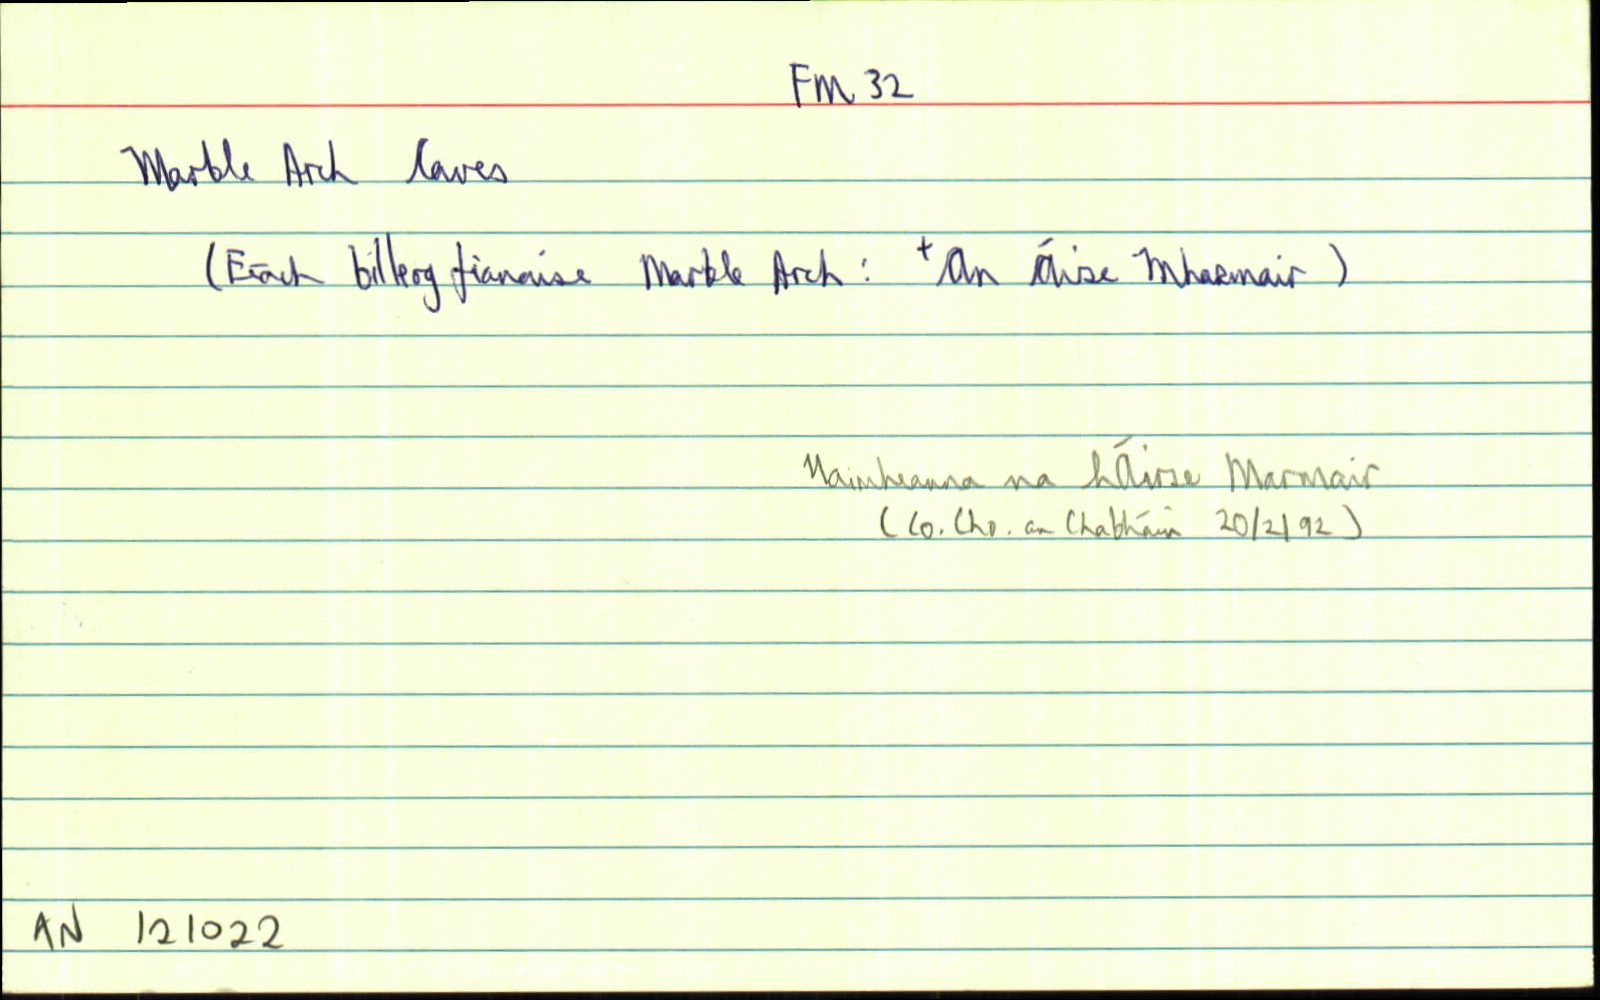 FM 32
Marble Arch Caves
(Féach billeog fianaise Marble Arch: +An Áirse Mharmair)
Uaimheanna na hÁirse Marmair
(Co. Cho. an Chabháin 20/2/92)
AN 121022